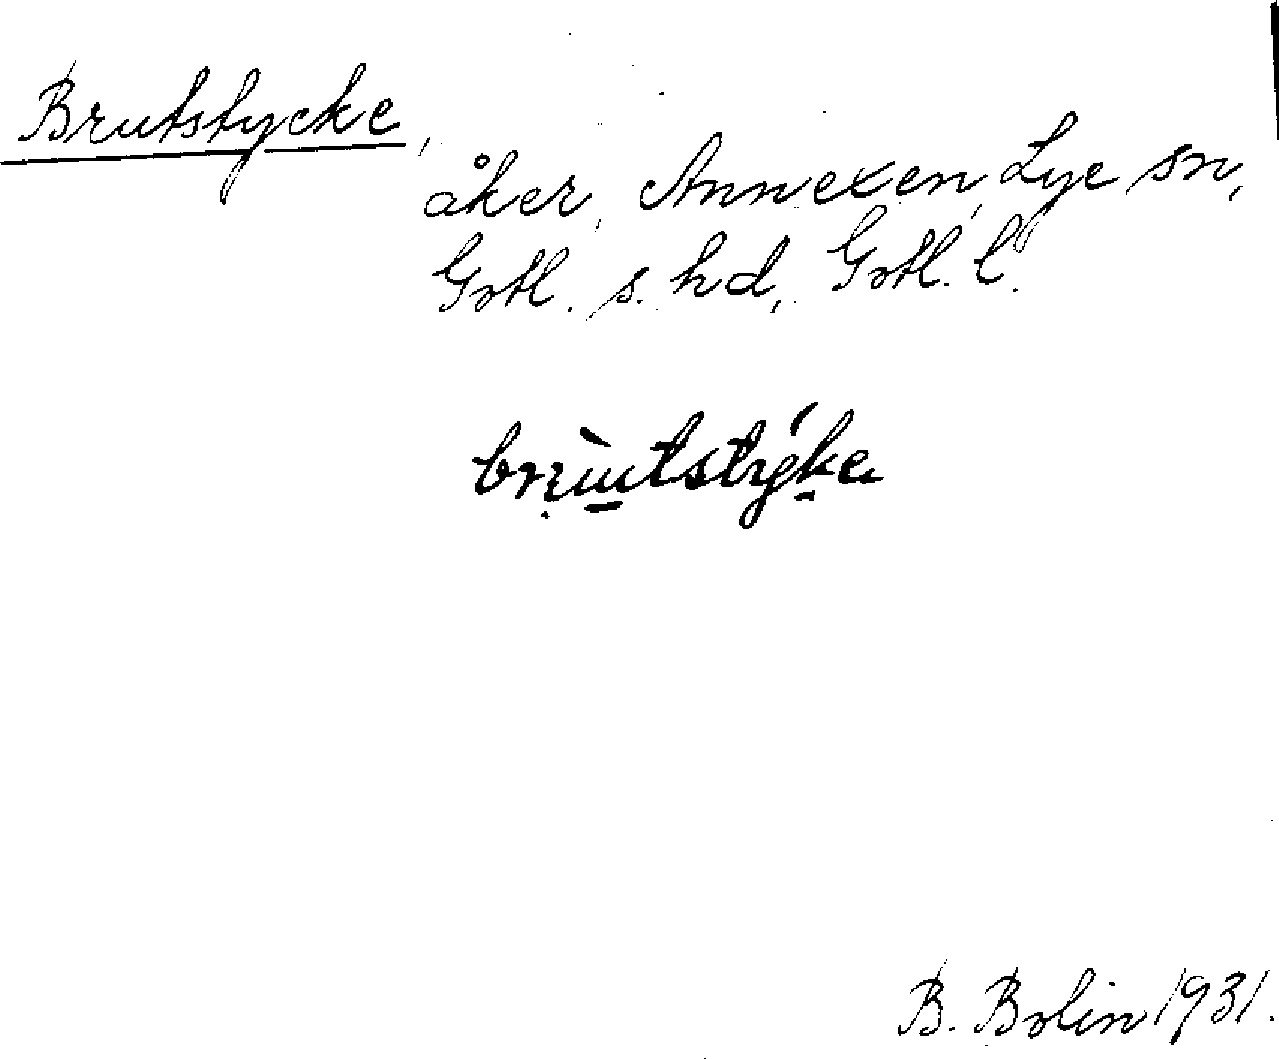 Brutstycke,
åker, Annexen, Lye sn,
Gotl. s. hd, Gotl. l.
brùutstýke
B. Bolin 1931.